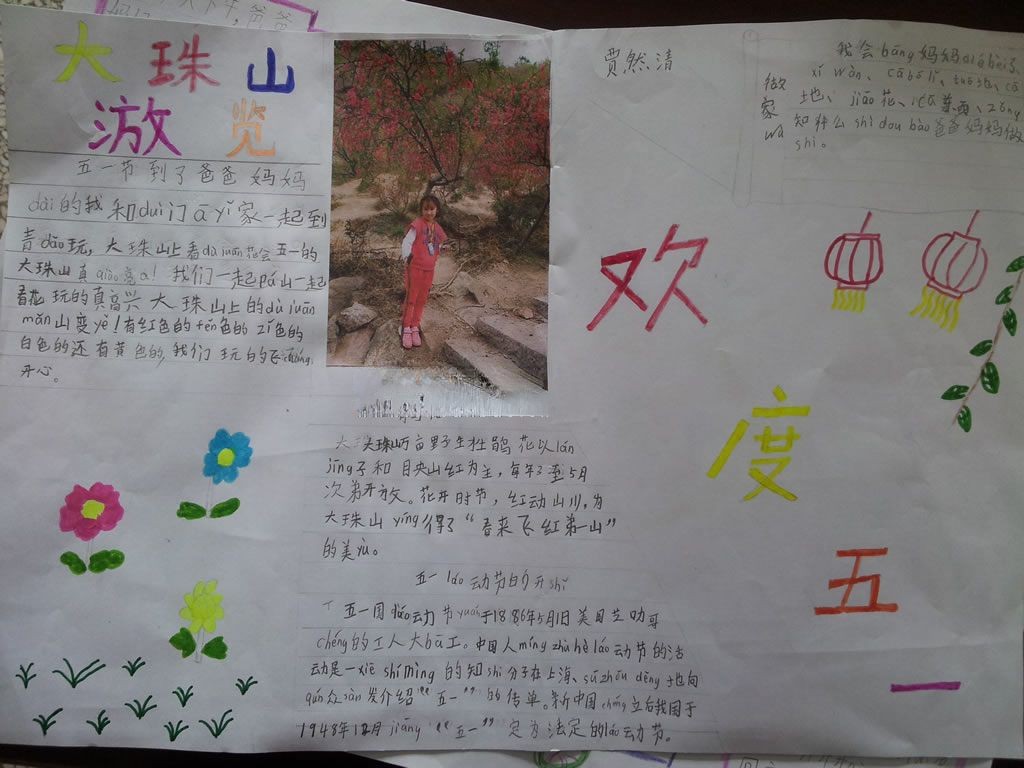 大珠山
游览
五一节到了爸爸妈妈
dài的我和duì门āyí家一起到
青dǎo玩，大珠山上看dùjuān花会五一的
大珠山真qiào亮a！我们一起pá山一起
看花玩的真高兴大珠山上的dùjuān
mǎn山变yě！有红色的fěn色的zǐ色的
白色的还有黄色的，我们玩的飞cháng
开心。
贾然清
做
家
wù
我会bāng妈妈dié bèi子、
xǐ wǎn、cā bō lí、tuō地、cā
地、jiāo花、
知什么shì dou bāo爸爸妈妈做
shì。
欢
度
五
一
大珠山万亩野生杜鹃花以lán
jīng子和映山红为主，每年3至5月
次第开放。花开时节，红动山川，为
大珠山yíng得了“春来飞红第一山”
的美yù。
五一láo动节的yóu shí
五一国láo动节yuán于1886年5月1日美国芝加哥
chéng的工人大bà工。中国人míng zhù hè láo动节的活
动是一xiē shí mìng的知shi分子在上海、sū zhōu děng地向
qún众sàn发介绍“五一”的传单。新中国chéng立后我国于
1948年12月jiāng“五一”定为法定的láo动节。